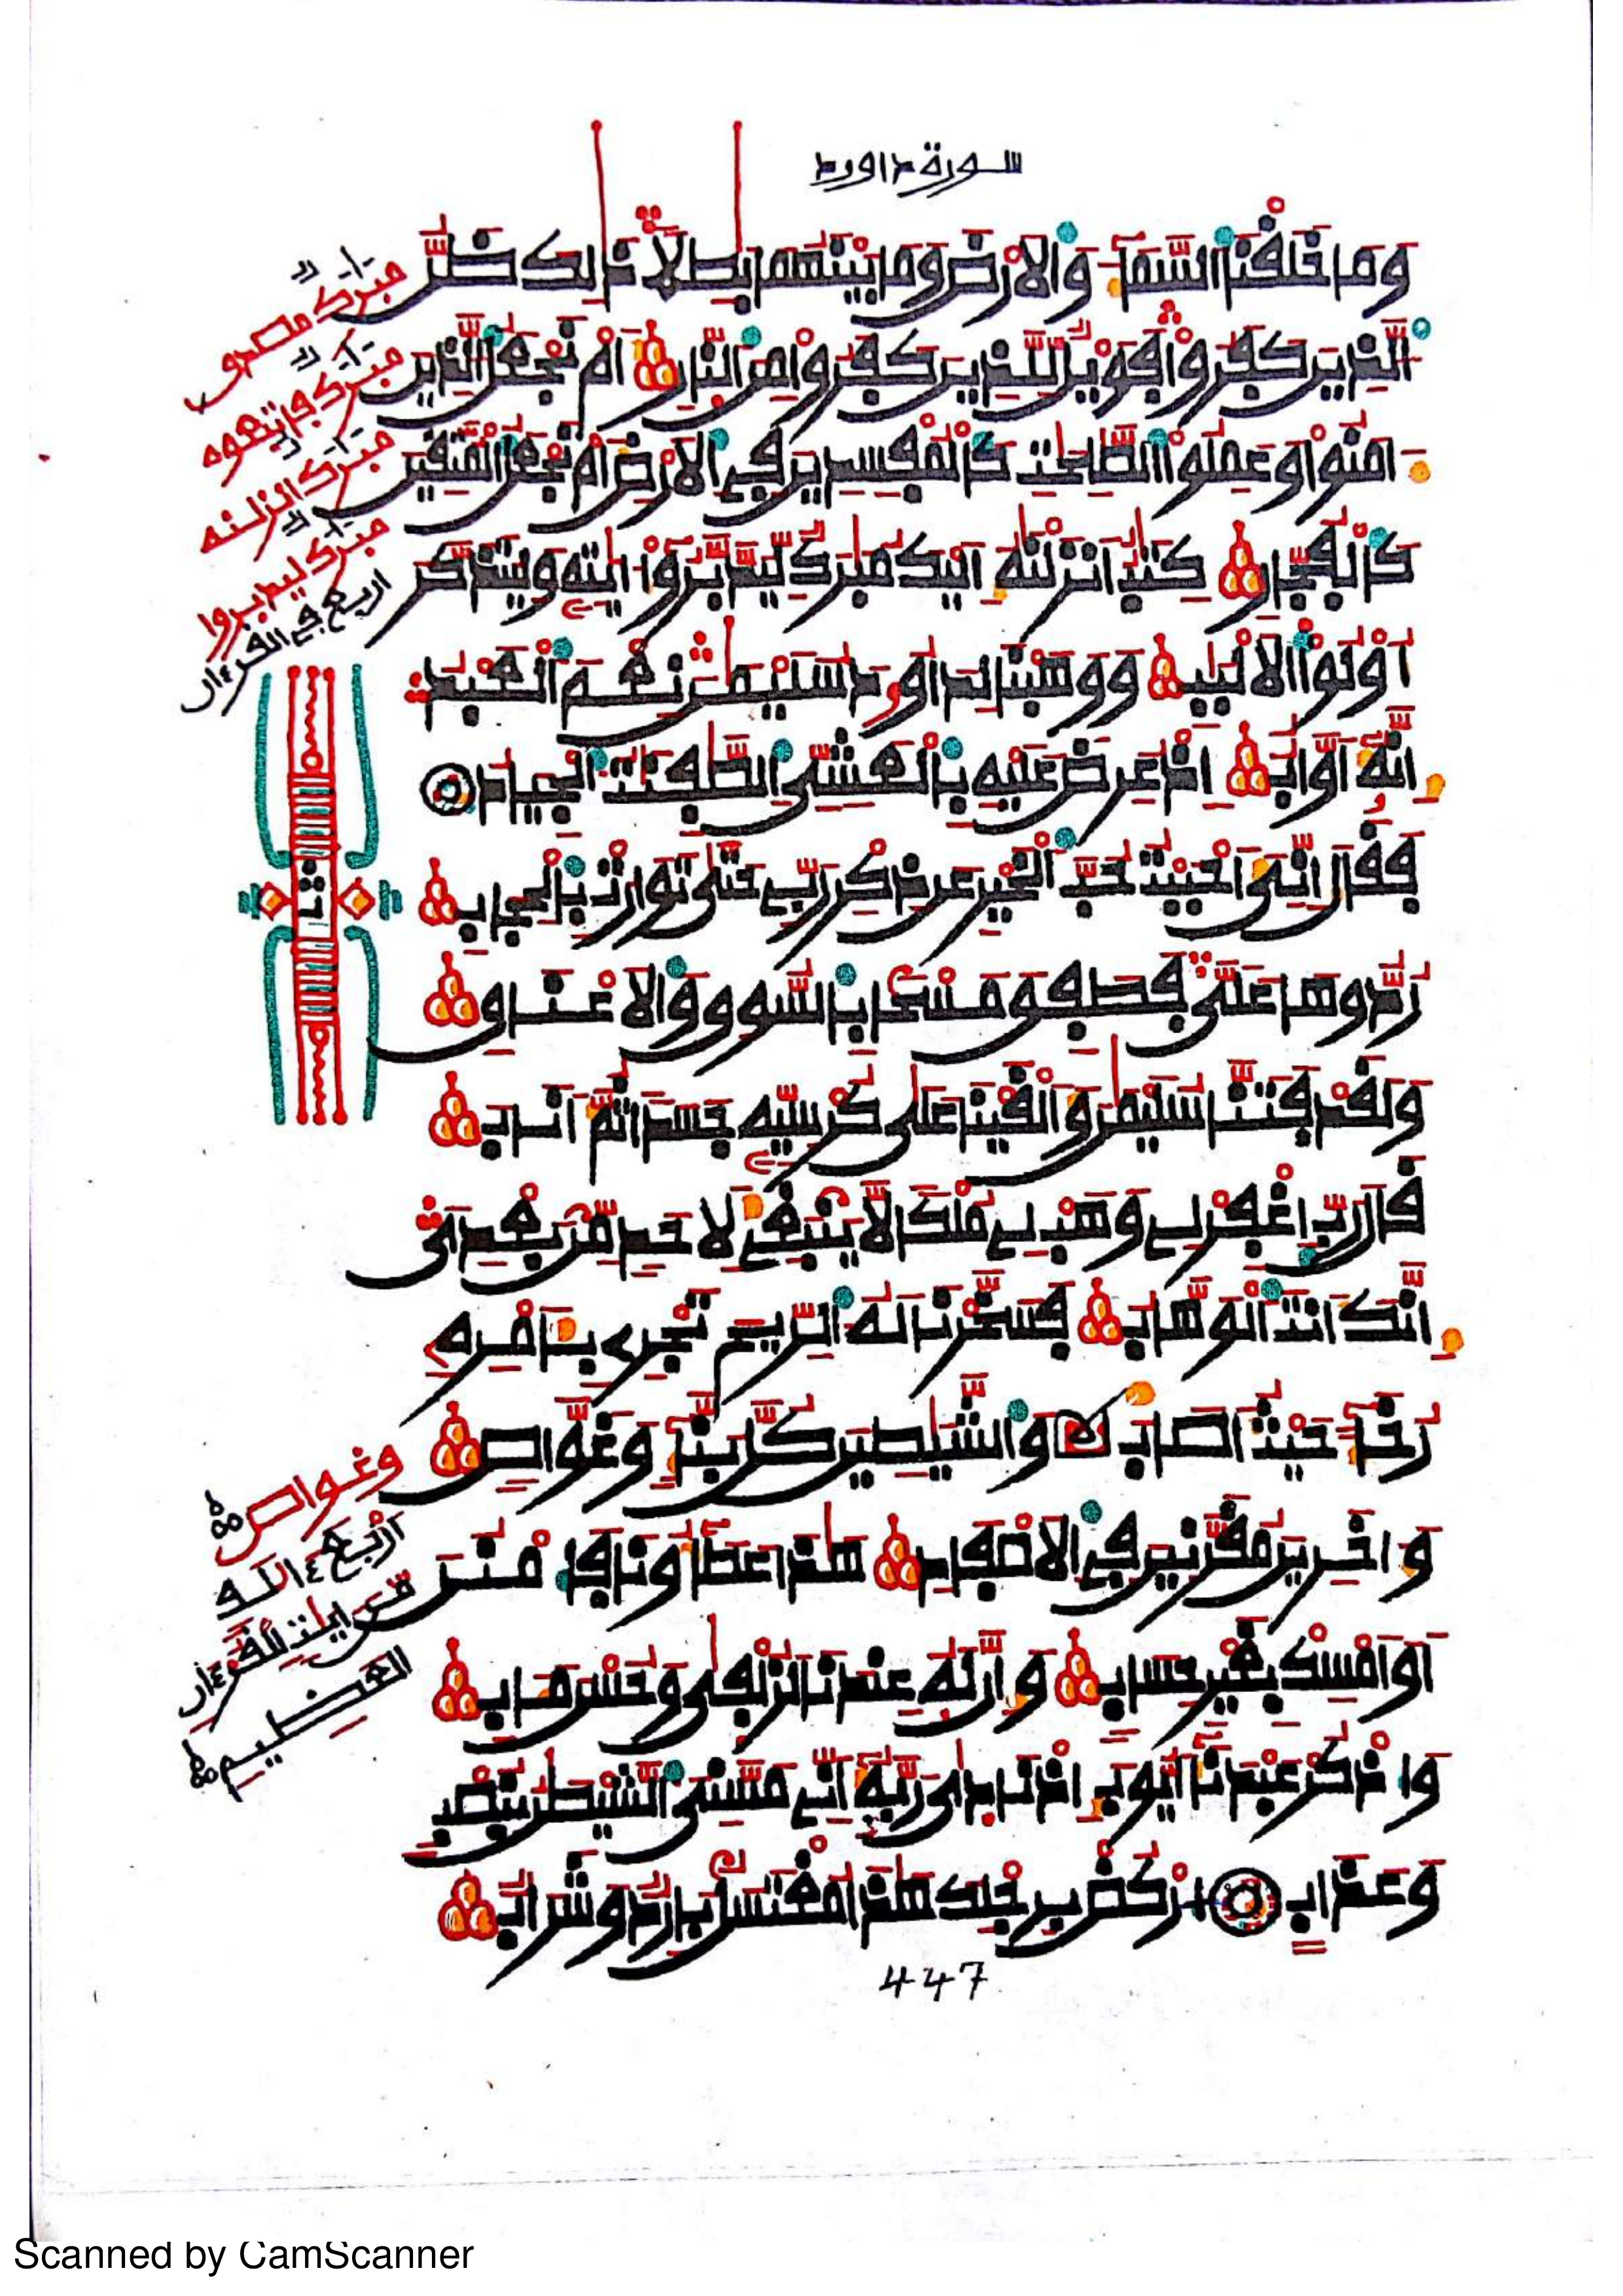 سورة داود
وما خلفنا السماء والارض وما بينهما بطلا ذالك ظن
الذين كفروا فويل للذين كفروا من النار ام نجعل الذين
ءامنوا وعملوا الصلحت كالمفسدين في الارض ام نجعل المتقين
كالفجار كتب انزلنه اليك مبرك ليدبروا ءايته وليتذكر
اولوا الالبب ووهبنا لداوود سليمن نعم العبد
انه اواب اذ عرض عليه بالعشي الصفنت الجياد
فقال اني احببت حب الخير عن ذكر ربي حتى توارت بالحجاب
ردوها علي فطفق مسحا بالسوق والاعناق
ولقد فتنا سليمن والقينا على كرسيه جسدا ثم اناب
قال رب اغفر لي وهب لي ملكا لا ينبغي لاحد من بعدي
انك انت الوهاب فسخرنا له الريح تجري بامره
رخاء حيث اصاب والشيطين كل بناء وغواص
واخرين مقرنين في الاصفاد هذا عطاؤنا فامنن
او امسك بغير حساب وان له عندنا لزلفى وحسن مءاب
واذكر عبدنا ايوب اذ نادى ربه اني مسني الشيطن بنصب
وعذاب اركض برجلك هذا مغتسل بارد وشراب
مبرك مصدق
مبرك فاتبعوه
مبرك انزلنه
مبرك ليدبروا
اربع في القرءان
ثمن
وغواص
اربع ءالله
من ايت القرءان
العظيم
447
Scanned by CamScanner